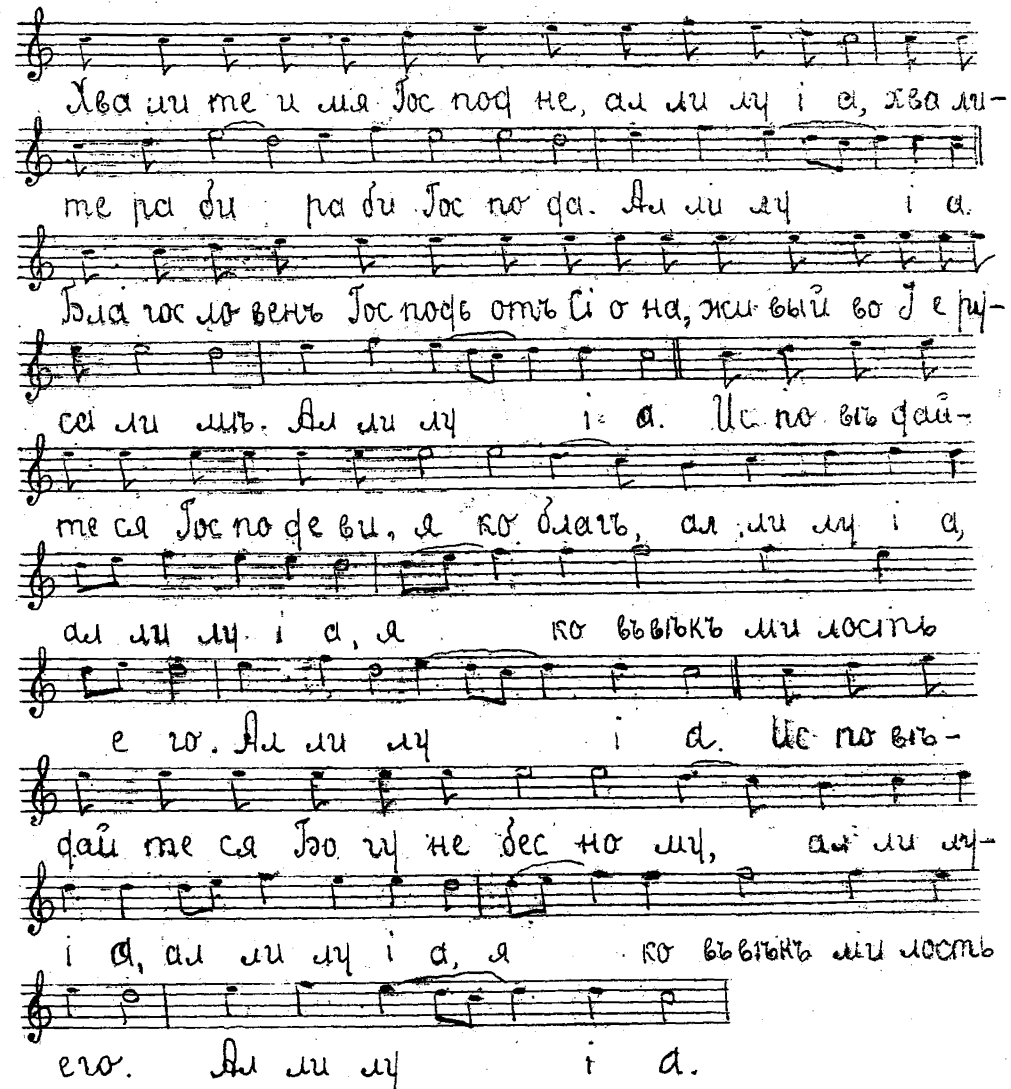 Хва ли те и мя Гос под не, ал ли лу і а, хва ли-
те ра би ра би Гос по да. Ал ли лу і а.
Бла гос ло венъ Гос подь отъ Сі о на, жи вый во І е ру-
са ли мѣ. Ал ли лу і а. Ис по вѣ дай-
те ся Гос по де ви, я ко благъ, ал ли лу і а,
ал ли лу і а, я ко въвѣкъ ми лость
е го. Ал ли лу і а. Ис по вѣ-
дай те ся Бо гу не бес но му, ал ли лу-
і а, ал ли лу і а, я ко въвѣкъ ми лость
его. Ал ли лу і а.